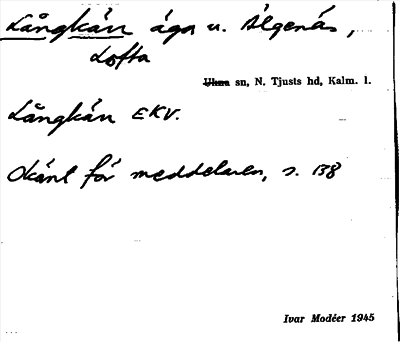 Långkärr äga u. Älgenäs,
Lofta
Ukna sn, N. Tjusts hd, Kalm. l.
Långkärr EKV.
Okänt för meddelaren, s. 138
Ivar Modéer 1945